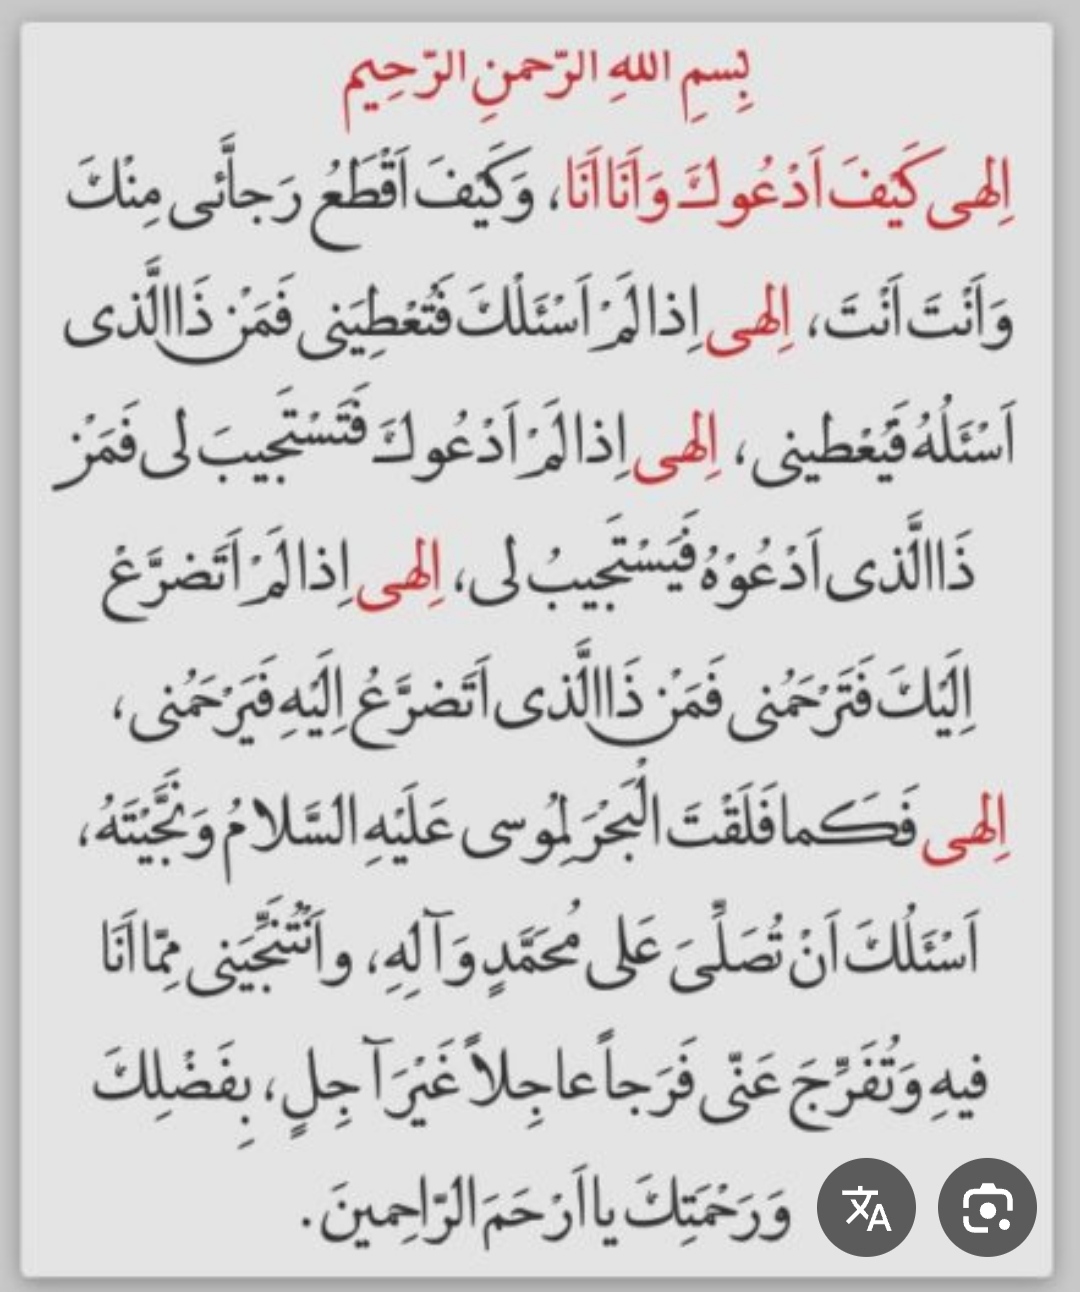 بِسمِ اللهِ الرّحمنِ الرّحِیم
اِلهی کَیْفَ اَدْعُوكَ وَاَنَا اَنَا، وَكَیْفَ اَقْطَعُ رَجائَی مِنْكَ
وَاَنْتَ اَنْتَ، اِلهی اِذا لَمْ اَسْئَلْكَ فَتُعْطِیَنی فَمَنْ ذَا الَّذی
اَسْئَلُهُ فَیُعْطینی، اِلهی اِذا لَمْ اَدْعُوكَ فَتَسْتَجیبَ لی فَمَنْ
ذَا الَّذی اَدْعُوْهُ فَیَسْتَجیبُ لی، اِلهی اِذا لَمْ اَتَضرَّعْ
اِلَیْكَ فَتَرْحَمُنی فَمَنْ ذَا الَّذی اَتَضرَّعُ اِلَیْهِ فَیَرْحَمُنی،
اِلهی فَكَما فَلَقْتَ الْبَحْرَ لِمُوسی عَلَیْهِ السَّلامُ وَنَجَّیْتَهُ،
اَسْئَلُكَ اَنْ تُصَلِّیَ عَلی مُحَمَّدٍ وَآلِهِ، واَنْتُنَجِّیَنی مِمّا اَنَا
فیهِ وَتُفَرِّجَ عَنّی فَرَجاً عاجِلاً غَیْرَ آجِلٍ، بِفَضْلِكَ
وَرَحْمَتِكَ یا اَرْحَمَ الرّاحِمینَ.